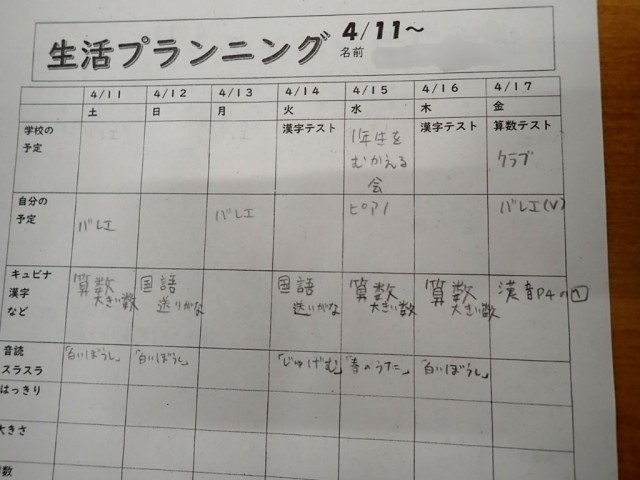 生活プランニング
4/11～
名前
4/11 4/12 4/13 4/14 4/15 4/16 4/17
土 日 月 火 水 木 金
学校の
予定
漢字テスト
1年生を
むかえる
会
漢字テスト
算数テスト
クラブ
自分の
予定
バレエ
バレエ
ピアノ
バレエ(V)
キュビナ
漢字
など
算数
大きい数
国語
送りがな
国語
送りがな
算数
大きい数
算数
大きい数
漢音P4の
音読
スラスラ
「白いぼうし」
「白いぼうし」
「じゅげむ」
「春のうた」
「白いぼうし」
はっきり
大きさ